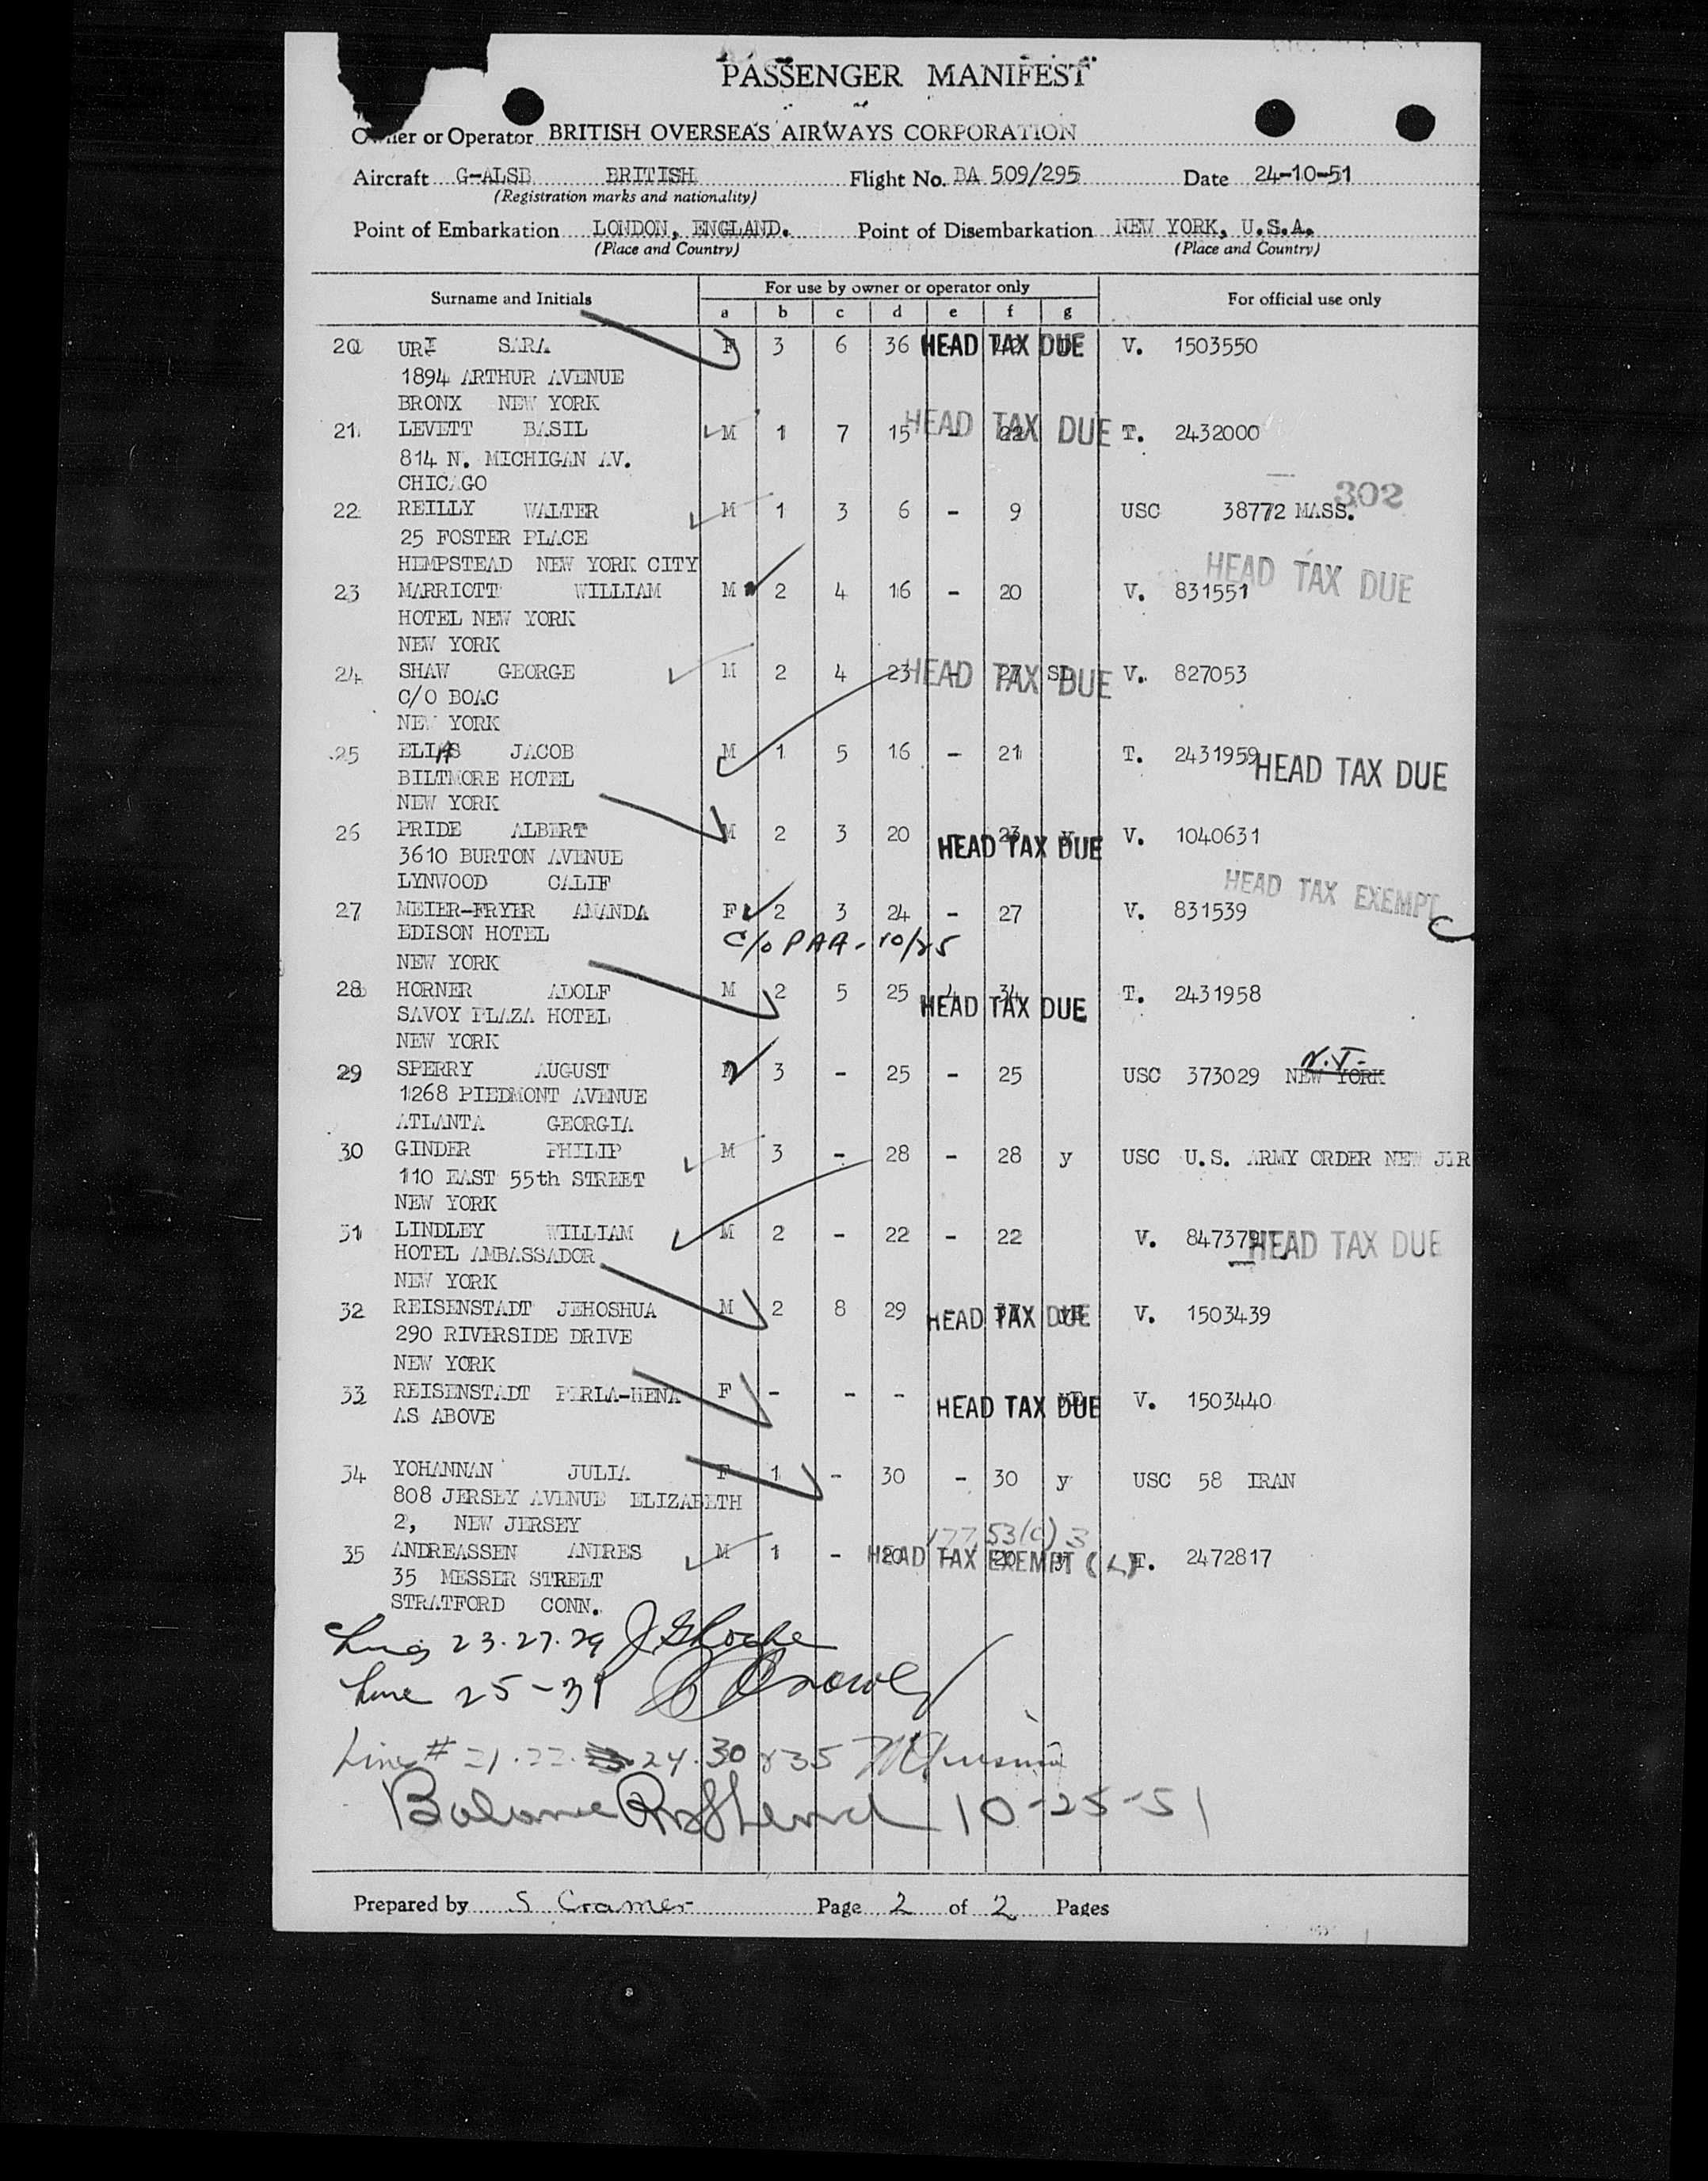 PASSENGER MANIFEST
Owner or Operator BRITISH OVERSEAS AIRWAYS CORPORATION
Aircraft G-ALSB BRITISH Flight No. BA 509/295 Date 24-10-51
(Registration marks and nationality)
Point of Embarkation LONDON, ENGLAND. Point of Disembarkation NEW YORK, U.S.A.
(Place and Country) (Place and Country)
Surname and Initials For use by owner or operator only For official use only
a b c d e f g
20 URI SARA F 3 6 36 HEAD TAX DUE V. 1503550
1894 ARTHUR AVENUE
BRONX NEW YORK
21 LEVETT BASIL M 1 7 15 - 22 HEAD TAX DUE T. 2432000
814 N. MICHIGAN AV.
CHICAGO
302
22 REILLY WALTER M 1 3 6 - 9 USC 38772 MASS.
25 FOSTER PLACE
HEMPSTEAD NEW YORK CITY
HEAD TAX DUE
23 MARRIOTT WILLIAM M 2 4 16 - 20 V. 831551
HOTEL NEW YORK
NEW YORK
24 SHAW GEORGE M 2 4 23 - 27 HEAD TAX DUE V. 827053
C/O BOAC
NEW YORK
25 ELIAS JACOB M 1 5 16 - 21 T. 2431959 HEAD TAX DUE
BILTMORE HOTEL
NEW YORK
26 PRIDE ALBERT M 2 3 20 - 23 y HEAD TAX DUE V. 1040631
3610 BURTON AVENUE
LYNWOOD CALIF
HEAD TAX EXEMPT
27 MEIER-FRYER AMANDA F 2 3 24 - 27 V. 831539
EDISON HOTEL C/o PAA - 10/25
NEW YORK
28 HORNER ADOLF M 2 5 25 4 34 HEAD TAX DUE T. 2431958
SAVOY PLAZA HOTEL
NEW YORK
N.J.
29 SPERRY AUGUST M 3 - 25 - 25 USC 373029 NEW YORK
1268 PIEDMONT AVENUE
ATLANTA GEORGIA
30 GINDER PHILIP M 3 - 28 - 28 y USC U.S. ARMY ORDER NEW JER
110 EAST 55th STREET
NEW YORK
31 LINDLEY WILLIAM M 2 - 22 - 22 V. 847379 HEAD TAX DUE
HOTEL AMBASSADOR
NEW YORK
32 REISENSTADT JEHOSHUA M 2 8 29 - 37 HEAD TAX DUE V. 1503439
290 RIVERSIDE DRIVE
NEW YORK
33 REISENSTADT PERLA-HENA F - - - HEAD TAX DUE V. 1503440
AS ABOVE
34 YOHANNAN JULIA F 1 - 30 - 30 y USC 58 IRAN
808 JERSEY AVENUE ELIZABETH
2, NEW JERSEY
177.53(c) 3
35 ANDREASSEN ANIRES M 1 - 20 - 20 y HEAD TAX EXEMPT (L) T. 2472817
35 MESSER STREET
STRATFORD CONN.
Lines 23.27.29
Line 25-31
Line # 21.22. 24.30 & 35
Balance 10-25-51
Prepared by S Cramer Page 2 of 2 Pages